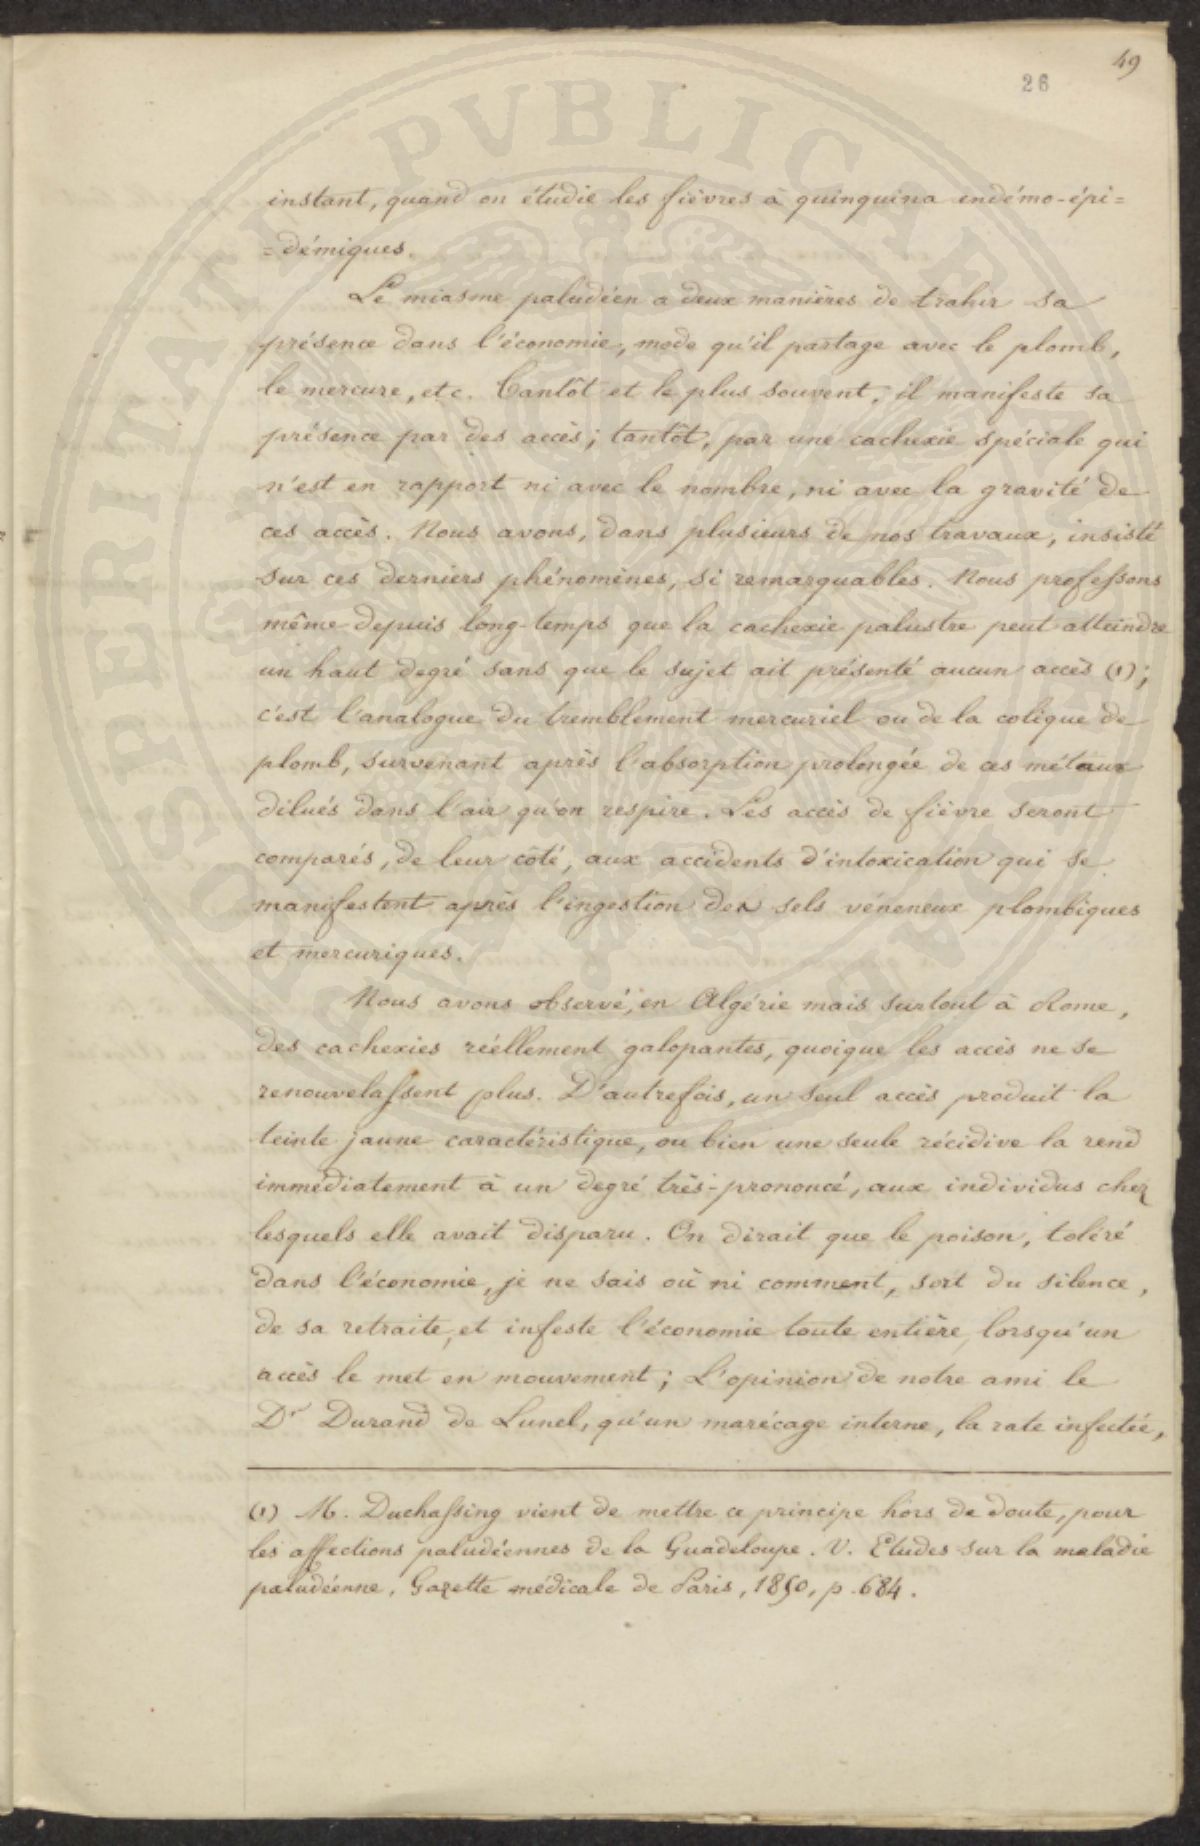 49
26
PROSPERITATI PVBLICAE AVGENDAE
instant, quand on étudie les fièvres à quinquina endémo-épi=
=démiques.
Le miasme paludéen a deux manières de trahir sa
présence dans l'économie, mode qu'il partage avec le plomb,
le mercure, etc. Tantôt et le plus souvent, il manifeste sa
présence par des accès; tantôt, par une cachexie spéciale qui
n'est en rapport ni avec le nombre, ni avec la gravité de
ces accès. Nous avons, dans plusieurs de nos travaux, insisté
sur ces derniers phénomènes, si remarquables. Nous professons
même depuis long-temps que la cachexie palustre peut atteindre
un haut degré sans que le sujet ait présenté aucun accès (1);
c'est l'analogue du tremblement mercuriel ou de la colique de
plomb, survenant après l'absorption prolongée de ces métaux
dilués dans l'air qu'on respire. Les accès de fièvre seront
comparés, de leur côté, aux accidents d'intoxication qui se
manifestent après l'ingestion des sels vénéneux plombiques
et mercuriques.
Nous avons observé, en Algérie mais surtout à Rome,
des cachexies réellement galopantes, quoique les accès ne se
renouvelassent plus. D'autrefois, un seul accès produit la
teinte jaune caractéristique, ou bien une seule récidive la rend
immédiatement à un degré très-prononcé, aux individus chez
lesquels elle avait disparu. On dirait que le poison, toléré
dans l'économie, je ne sais où ni comment, sort du silence,
de sa retraite, et infeste l'économie toute entière, lorsqu'un
accès le met en mouvement; L'opinion de notre ami le
Dr Durand de Lunel, qu'un marécage interne, la rate infectée,
(1) M. Duchassing vient de mettre ce principe hors de doute, pour
les affections paludéennes de la Guadeloupe. V. Etudes sur la maladie
paludéenne, Gazette médicale de Paris, 1850, p. 684.